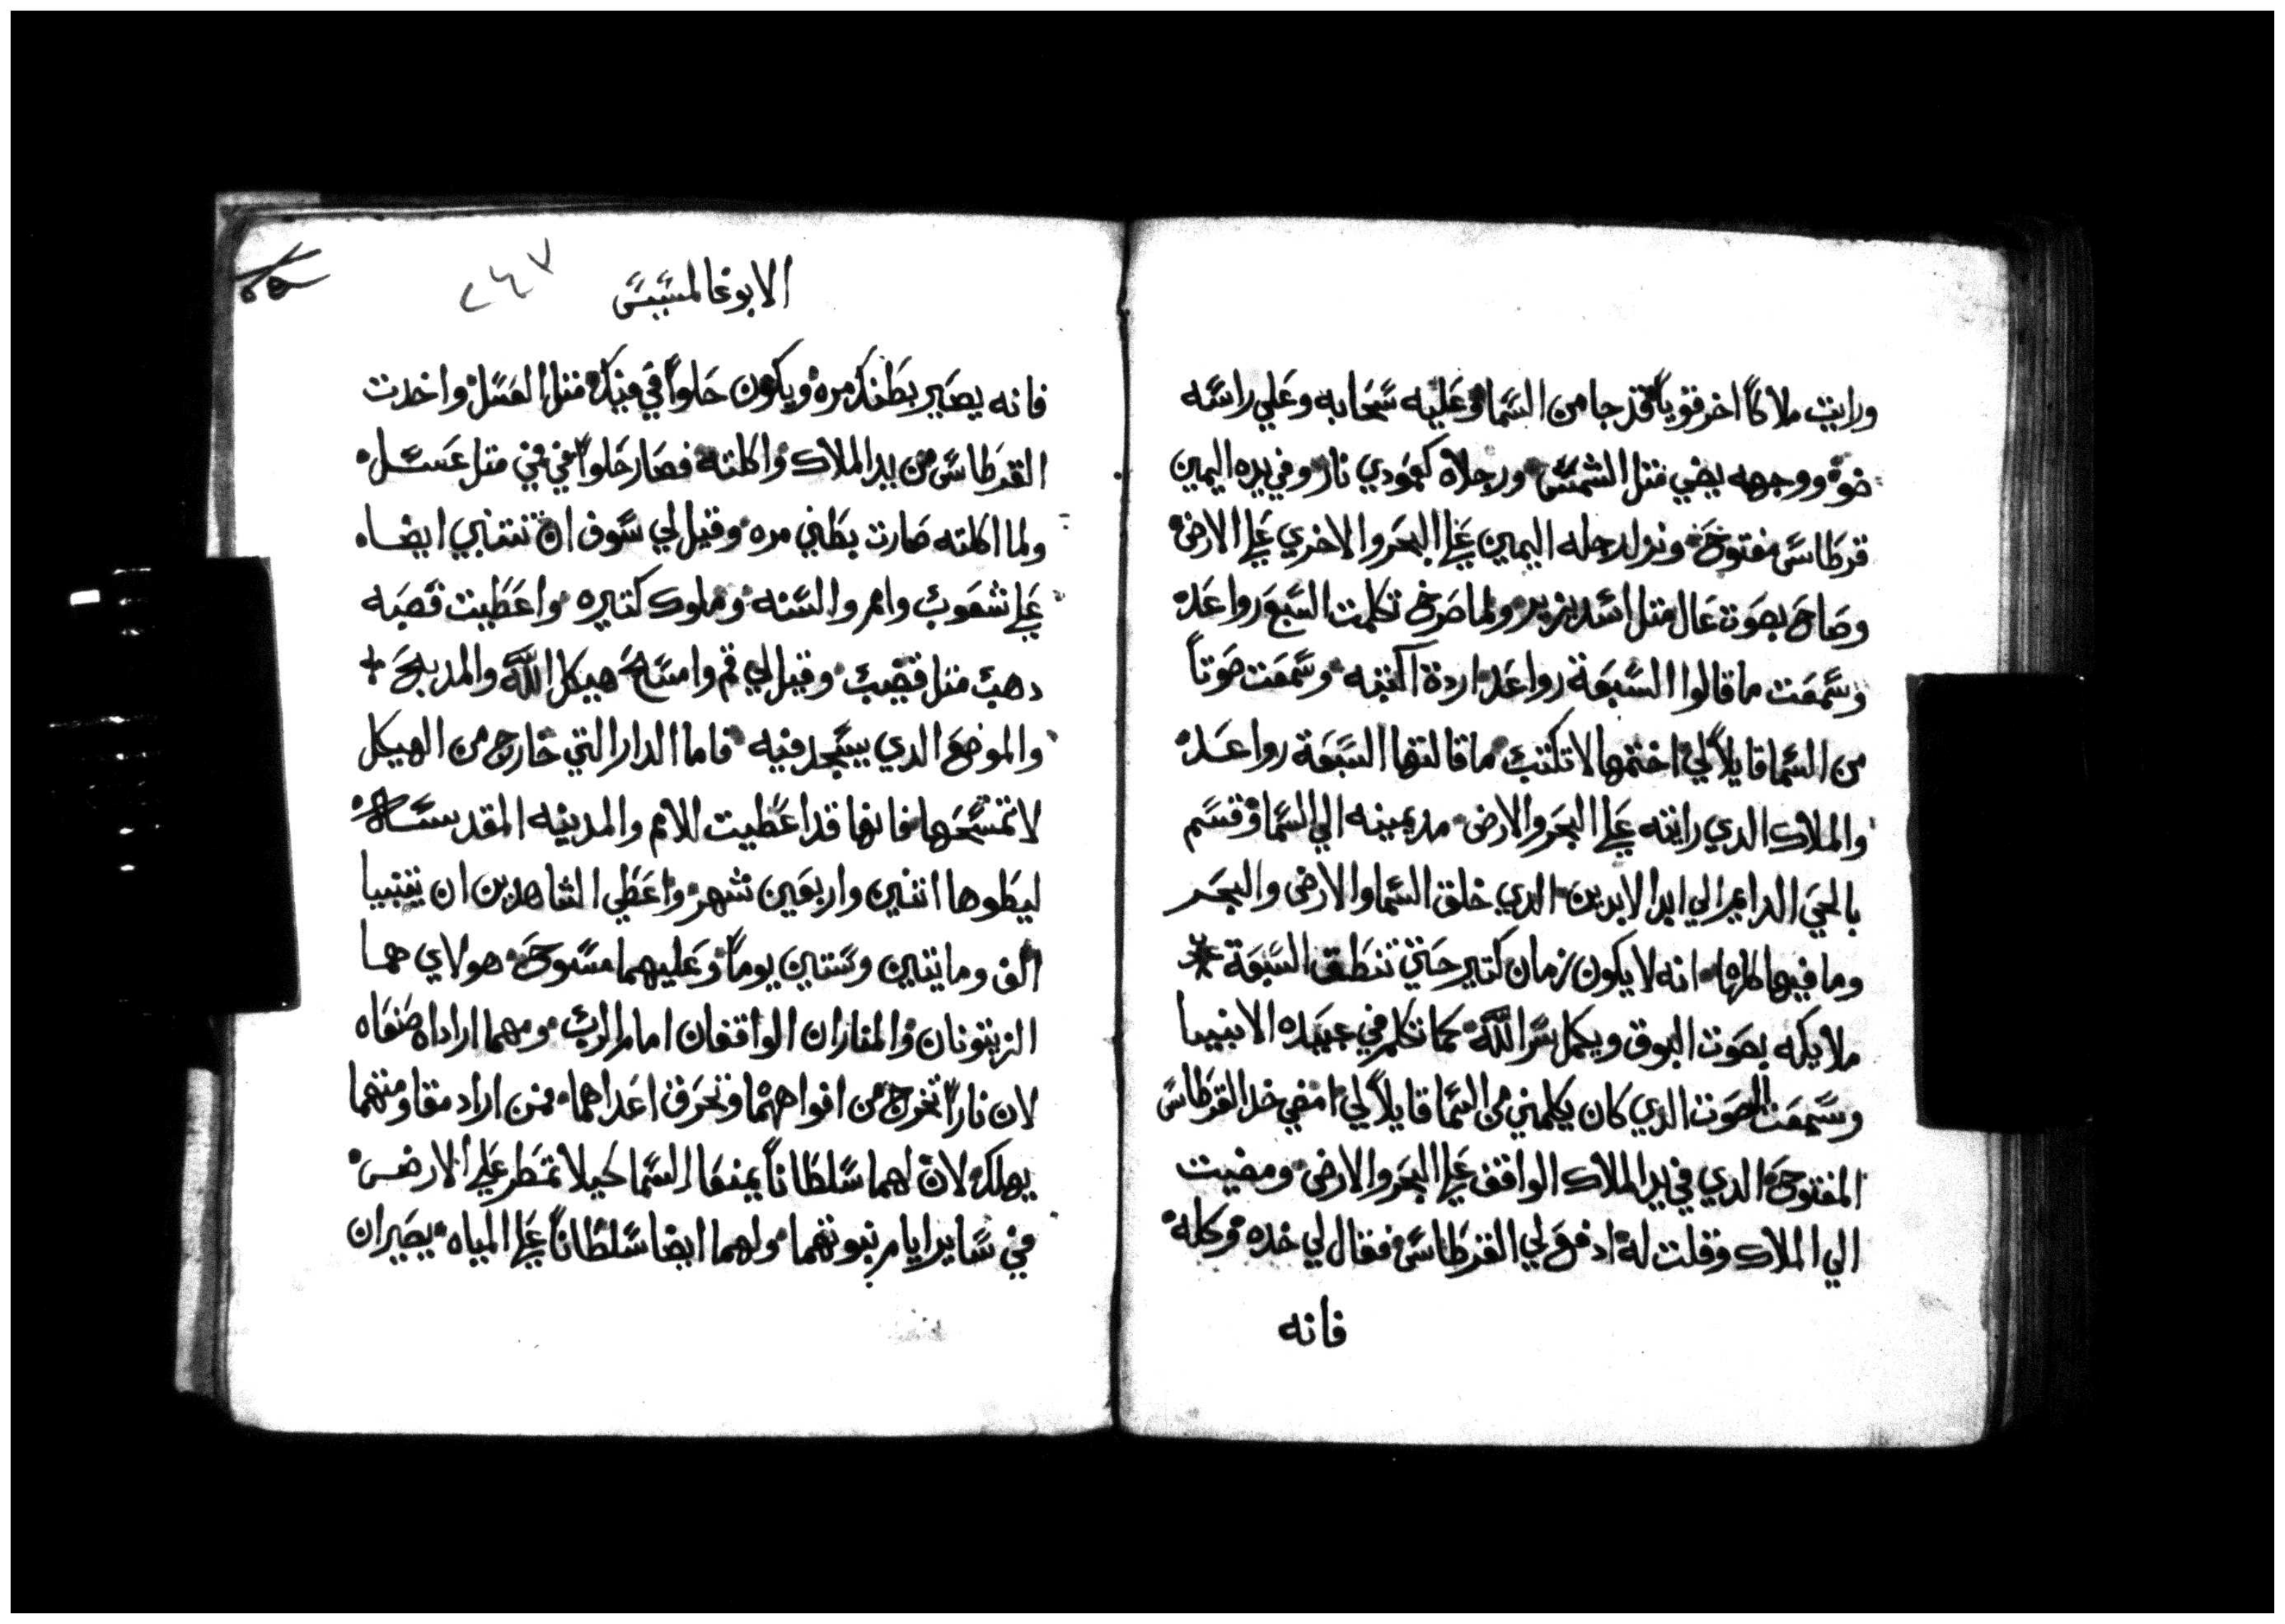 ورايت ملاكاً اخر قوياً قد جا من السَّما وعَليه سَّحَابه وعَلي راسَّه
ضوء ووجهه يضي متل الشمسَّ ورجلاه كعَمودي نار وفي يده اليمين
قرطَاسَّ مفتوحَ ونزل رجله اليمين عَلي البحَر والاخري عَلي الارض
وصَاحَ بصَوت عَال متل اسَّد يزير ولما صَرخ تكلمت السَّبعَ رواعَد
وسَّمعَت ما قالوا السَّبعَة رواعَد اردة اكتبه وسَّمعَت صَوتاً
من السَّما قايلاً لي اختمها لا تكتبُ ما قالتها السَّبعَة رواعَد
والملاك الدي رايته عَلي البحَر والارض مد يمينه الي السَّما وقسَّم
بالحَي الدايم الي ابد الابدين الدي خلق السَّما والارض والبحَر
وما فيها كلها انه لا يكون زمان كتير حَتي تنطَق السَّبعَة
ملايكه بصَوت البوق ويكمل سَّر اللَّه كما تكلم في عبيده الانبيا
وسَّمعَت الصَوت الدي كان يكلمني من السَّما قايلاً لي امضي خد القرطَاسَّ
المفتوحَ الدي في يد الملاك الواقف عَلي البحَر والارض ومضيت
الي الملاك وقلت له ادفعَ لي القرطَاسَّ فقال لي خده وكله
فانه
الابوغالمسَّيسَّ
٢٤٧
فانه يصَير بطَنك مره ويكون حَلواً في فيك متل العَسَّل واخدت
القرطَاسَّ من يد الملاك واكلته فصَار حَلواً في في متل عَسَّل
ولما اكلته صَارت بطَني مره وقيل لي سَّوف ان تتنبي ايضا
عَلي شعَوب وامم والسَّنه وملوك كتيره واعَطَيت قصَبه
دهب متل قضيب وقيل لي قم وامسَّحَ هيكل اللَّه والمدبحَ
والموضعَ الدي يسَّجد فيه فاما الدار التي خارج من الهيكل
لا تمسَّحَها فانها قد اعَطَيت للامم والمدينه المقدسَّه
ليطَوها اتنين واربعَين شهر واعَطَي الشاهدين ان يتنبيا
الف ومايتين وسَّتين يوماً وعَليهما مسَّوحَ هولاي هما
الزيتونان والمناران الواقفان امام الرب ومهما اراداه صَنعَاه
لان ناراً تخرج من افواههما وتحَرق اعَداهما فمن اراد مقاومتهما
يهلك لان لهما سَّلطَاناً يمنعَا السَّما لكيلا تمطَر عَلي الارض
في سَّاير ايام نبوتهما ولهما ايضا سَّلطَاناً عَلي المياه يصَيران